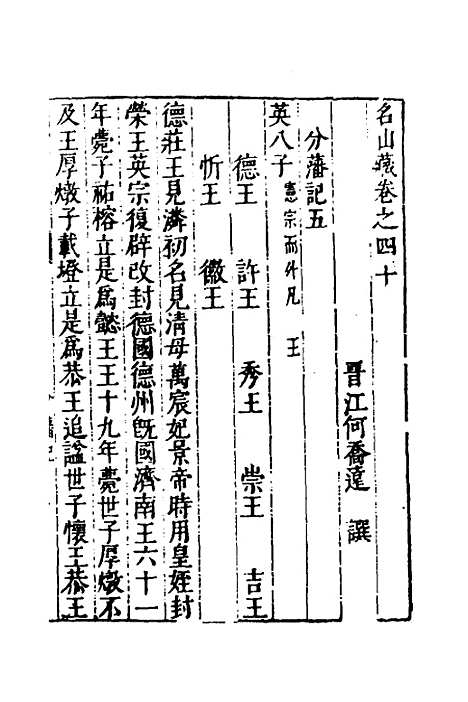 名山藏卷之四十
晋江何喬遠 譔
分藩記五
英八子 憲宗而外凡 王
德王 許王 秀王 崇王 吉王
忻王 徽王
德莊王見潾初名見清母萬宸妃景帝時用皇姪封
榮王英宗復辟改封德國德州旣國濟南王六十一
年薨子祐榕立是爲懿王王十九年薨世子厚燉不
及王厚燉子載墱立是爲恭王追謚世子懷王恭王